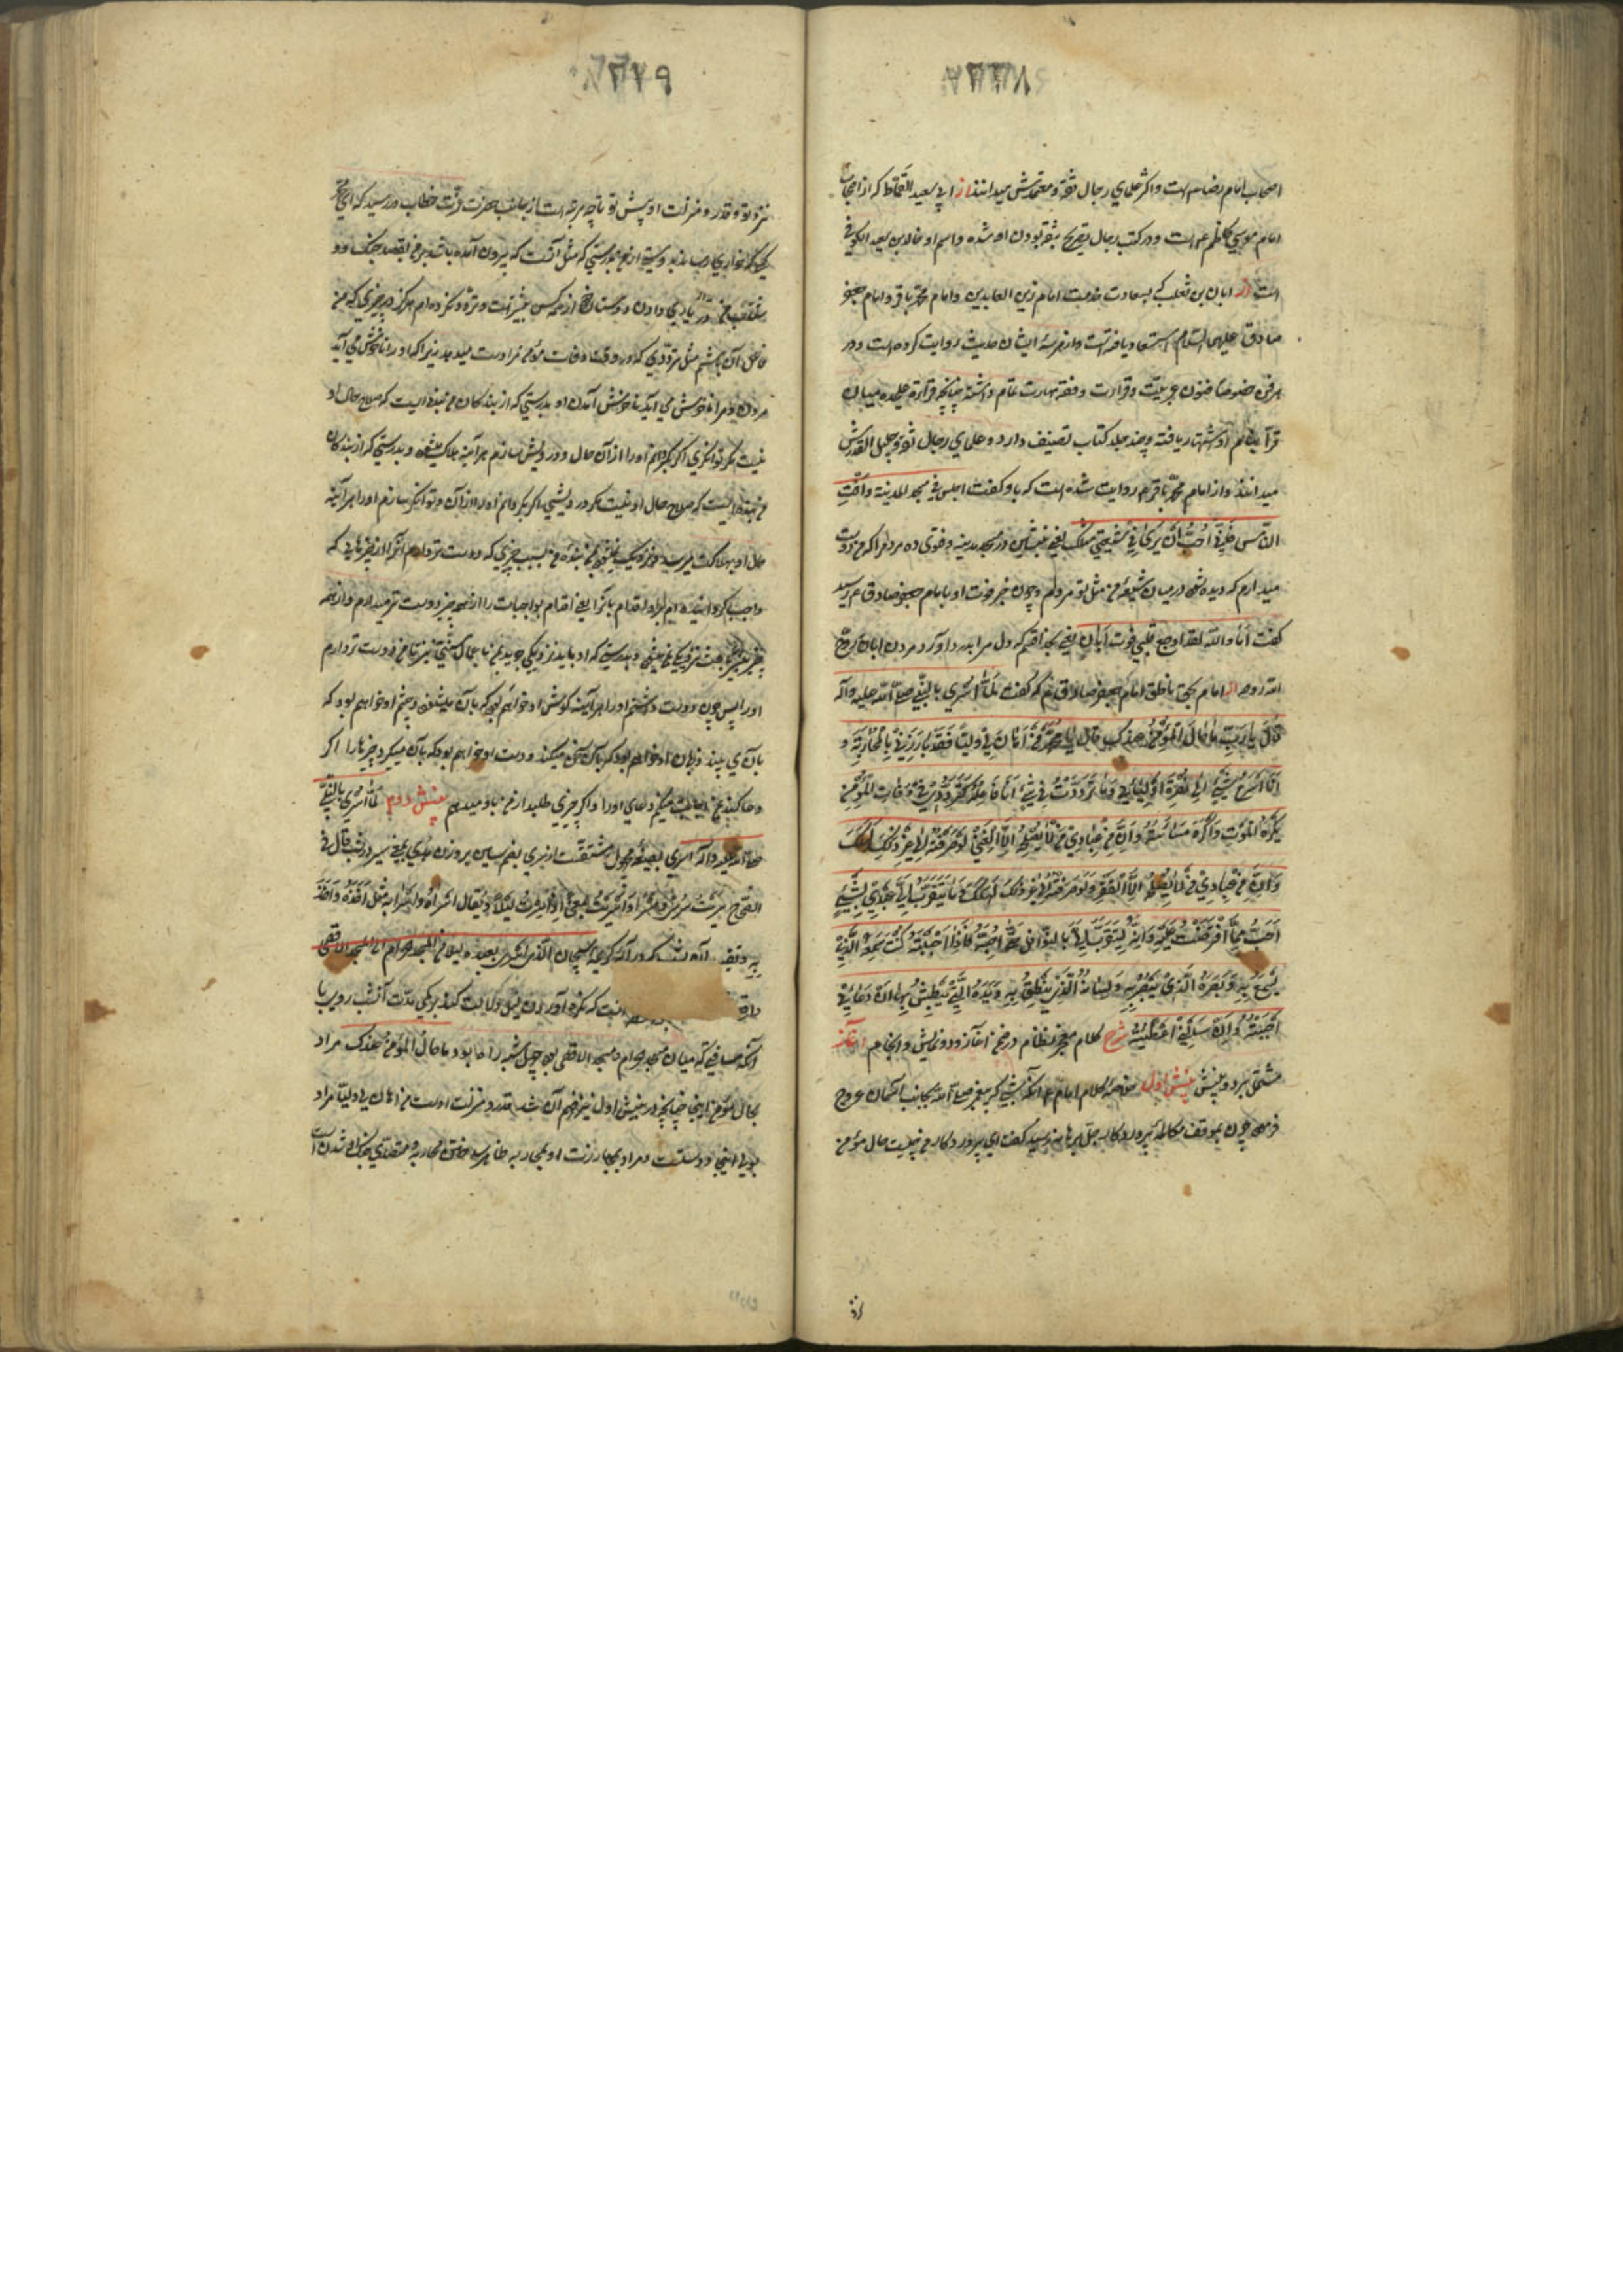 اصحاب امام رضا م است واکثر علمای رجال ثقه و معتمدش میدانند از ابی سعید القماط که از اصحاب
امام موسی کاظم م است ودر کتب رجال تصریح بثقه بودن او شده واسم او خالد بن سعید الکوفی
است از ابان بن تغلب که بسعادت خدمت امام زین العابدین وامام محمد باقر وامام جعفر
صادق علیهم السلام استسعاد یافته است واز هر سه ایشان حدیث روایت کرده است ودر
هر فن خصوصا فنون عربیت وقراءت وفقه مهارت تمام داشته چنانچه قراءة علیحده میان
قرآ بنام او اشتهار یافته وچند جلد کتاب تصنیف دارد وعلمای رجال ثقه وجلیل القدرش
میدانند واز امام محمد باقر م روایت شده است که باو گفت اجلس فی مسجد المدینة وافت
الناس فانی احب ان یری فی شیعتی مثلک یعنی بنشین در مسجد مدینه وفتوی ده مردم را که من دوست
میدارم که دیده شود در میان شیعه من مثل تو مردم وچون خبر فوت او بامام جعفر صادق م رسید
گفت اما والله لقد اوجع قلبی موت ابان یعنی بخدا قسم که دل مرا بدرد آورد مردن ابان روح
الله روحه از امام بحق ناطق امام جعفر صادق م که گفت لما اسری بالنبی صلی الله علیه وآله
قال یا رب ما حال المؤمن عندک قال یا محمد من اهان لی ولیا فقد بارزنی بالمحاربة و
انا اسرع شیئ الی نصرة اولیائی وما ترددت فی شیئ انا فاعله کترددی فی وفات المؤمن
یکره الموت واکره مساءته وان من عبادی من لا یصلحه الا الغنی لو صرفته الی غیر ذلک لهلک
وان من عبادی من لا یصلحه الا الفقر ولو صرفته الی غیر ذلک لهلک وما یتقرب الی عبدی بشیئ
احب مما افترضت علیه وانه لیتقرب الی بالنوافل حتی احبه فاذا احببته کنت سمعه الذی
یسمع به وبصره الذی یبصر به ولسانه الذی ینطق به ویده التی یبطش بها ان دعانی
اجبته وان سألنی اعطیته شرح کلام معجز نظام در ضمن آغاز ودو نمایش وانجام آغاز
مشتمل بر دو بینش بینش اول خلاصه کلام امام م آنکه شبی که پیغمبر صلی الله بجانب آسمان عروج
فرمود چون بموقف مکالمه پروردگار جل برهانه رسید گفت ای پروردگار من چیست حال مؤمن
نزد تو وقدر ومنزلت او پیش تو تا چه مرتبه است از جانب حضرت عزت خطاب در رسید که ای محمد
هر کس خواری رساند بدوستی از من بدرستی که مثل آنست که بیرون آمده باشد بر من بقصد جنگ ودو
شتاب من در یاری دادن دوستان از همه کس بیشتر است وتردد نکرده ام هرگز در چیزی که من
فاعل آن باشم مثل ترددی که در وقت وفات مؤمن مرا دست میدهد زیرا که او را ناخوش می آید
مردن ومرا ناخوش می آید ناخوش آمدن او بدرستی که از بندگان من بنده ایست که صلاح حال او
نیست مگر توانگری اگر بگردانم او را از آن حال ودرویش سازم هر آینه هلاک میشود وبدرستی که از بندگان
من بنده ایست که صلاح حال او نیست مگر درویشی اگر بگردانم او را از آن وتوانگر سازم او را هر آینه
حال او بهلاکت میرسد ونزدیک نمیشود بمن بنده من بسبب چیزی که دوست تر دارم آنرا از چیزهایی که
واجب گردانیده ام بر او
اورا پس چون دوست داشتم او را هر آینه گوش او خواهم بود که بآن میشنود وچشم او خواهم بود که
بآن می بیند وزبان او خواهم بود که بآن سخن میکند ودست او خواهم بود که بآن میگیرد چیزها را اگر
دعا کند مرا اجابت میکنم دعای او را واگر چیزی طلبد از من باو میدهم بینش دوم لما اسری بالنبی
صلی الله علیه وآله اسری بصیغه مجهول مشتقست از سری بضم سین بر وزن هدی یعنی سیر در شب قال فی
الصحاح سریت سری ومسری واسریت بمعنی اذا سرت لیلا ویقال اسراه واسری به مثل اخذه واخذ
به در آیه کریمه سبحان الذی اسری بعبده لیلا من المسجد الحرام الی المسجد الاقصی
آنست که نکره آوردن لیل دلالت کند بر کمی مدت آنشب روی با
آنکه مسافتی که میان مسجد حرام ومسجد الاقصی بود چهل شبه راه بود ما حال المؤمن عندک مراد
بحال مؤمن اینجا چنانچه در بینش اول نیز فهم آن شد قدر ومنزلت اوست من اهان لی ولیا مراد
بولی اینجا دوستست ومراد بمبارزت او بمحاربه ظاهر ساختن محاربه ومتصدی جنگ او شدنست